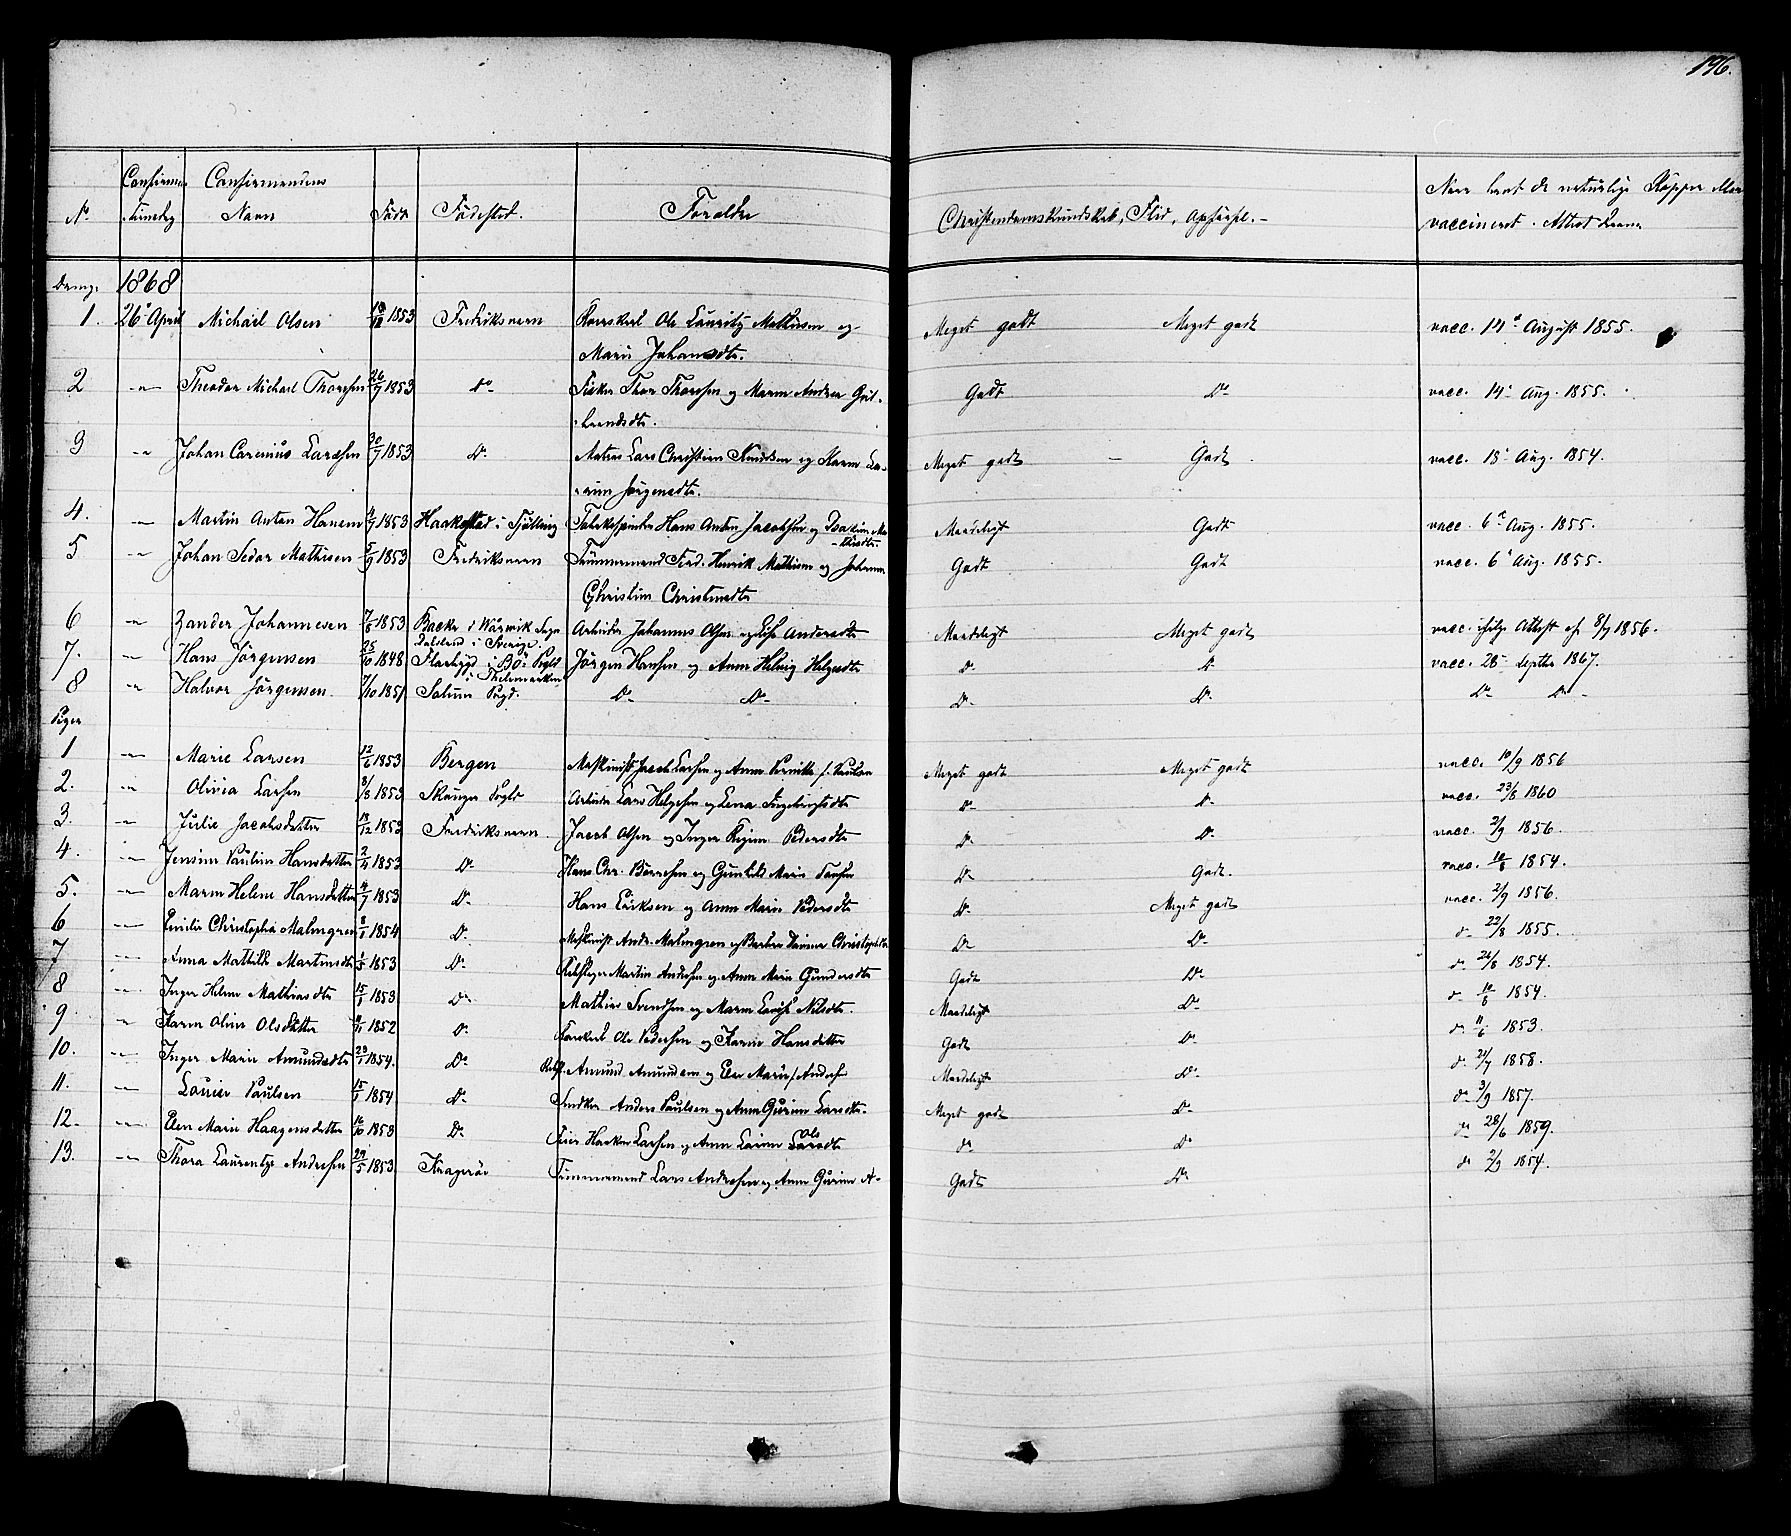 196.
Confirma- Confirmandens
No. tionsdag Navn Født Fødested. Forældre Christendomskundskab, Flid, Opførsel.- Naar havt de naturlige Kopper eller
vaccineret. Attest
Drenge 1868
1. 26de April Michael Olsen 1853 Fredriksværn Ole Lauritz Mathisen og Meget godt Meget godt vacc. 14de August 1855.
Marie Johansdtr.
2 -"- Theodor Michael Thorsen 26/7 1853 Do- Fisker Thor Thorsen og Maren Andrea Gul- Godt Do- vacc. 14de Aug. 1855.
brandsdtr.
3 -"- Johan Carenius Larssen 30/7 1853 Do. Matros Lars Christian Knudsen og Karen La- Meget godt - Godt vacc. 18de Aug. 1854.
Jørgensdtr.
4. -"- Martin Anton Hansen 1853 Haakestad i Tjølling Hans Anton Jacobsen og Maadeligt Godt vacc. 6te Aug. 1855.
5 -"- Johan Peder Mathisen 5/9 1853 Fredriksværn Tømmermand Ferd. Henrik Mathisen og Johanne Godt Godt vacc. 6te Aug. 1855.
Christine Christensdtr
6 -"- Zander Johannesen 7/8 1853 Backe i Wårwik Sogn Arbeider Johannes Olsen og Andersdtr Maadeligt Meget godt vacc. ifølge Attest af 8/9 1856.
Dalsland i Sverige.
7. -"- Hans Jørgensen 25/10 1848 i Bö Prgld Jørgen Hansen og Anne Helvig Helgesdtr Do Do vacc. 28 Septbr 1867.
i Thelemarken
8 -"- Halvor Jørgensen 7/10 1851 Solum Prgd. Do Do- Do- Do. Do- Do-
Piger
1 -"- Marie Larsen 12/6 1853 Bergen Maskinist Jacob Larsen og Anne f. Paulsen Meget godt Meget godt vacc. 10/9 1856
2. -"- Olivia Larsen 3/8 1853 Skanger Prgld Arbeider Lars Helgesen og Lena Ingebrigtsdtr Do- Do- vacc. 23/8 1860
3. -"- Julie Jacobsdatter 1853 Fredriksværn. Jacob Olsen og Inger Regine Pedersdtr Do- Do. vacc. 2/9 1856.
4. -"- Jensine Pauline Hansdatter 2/4 1853 Do. Hans Chr. Børresen og Gunhild Marie Do Godt. vacc. 10/8 1854.
5. -"- Maren Helene Hansdatter 1853 Do. Hans Eriksen og Anne Marie Pedersdtr Do- Meget godt vacc. 2/9 1856.
6 -"- Emilie Christopha Malmgren 8/1 1854 Do. Maskinist Andr. Malmgren og Barbra Do Do- do- 22/8 1855.
7 -"- Anna Mathilde Martinsdtr 1853 Do. Martin Andersen og Anne Marie Gundersdtr Godt Do- do- 26/6 1854.
8 -"- Inger Helene Mathiasdtr 15/1 1853 Do- Mathias Svendsen og Maren Lovise Nilsdtr. Maadeligt Do- do- 10/8 1854.
9 -"- Karen Oline Olsdatter 1852 Do. Ole Pedersen og Karen Hansdatter Godt Do- do- 11/6 1853.
10. -"- Inger Marie Amundsdtr 29/1 1854. Do- Amund Amundsen og Else Marie f. Anders Maadeligt Do- do- 21/7 1858.
11. -"- Lovise Paulsen 15/1 1854 Do- Snedker Anders Paulsen og Anne Gurine Larsdtr. Meget godt Do- do- 3/9 1857.
12. -"- Elen Marie Haagensdatter 16/10 1853 Do- Feier Haaken Larsen og Anne Larine Ols Larsdtr do- Do do- 28/6 1859.
13. -"- Thora Laurentze Andersen 29/5 1853. Kragerøe Tømmermand Lars Andersen og Anne Gurine A- Godt Do- do- 2/9 1854.